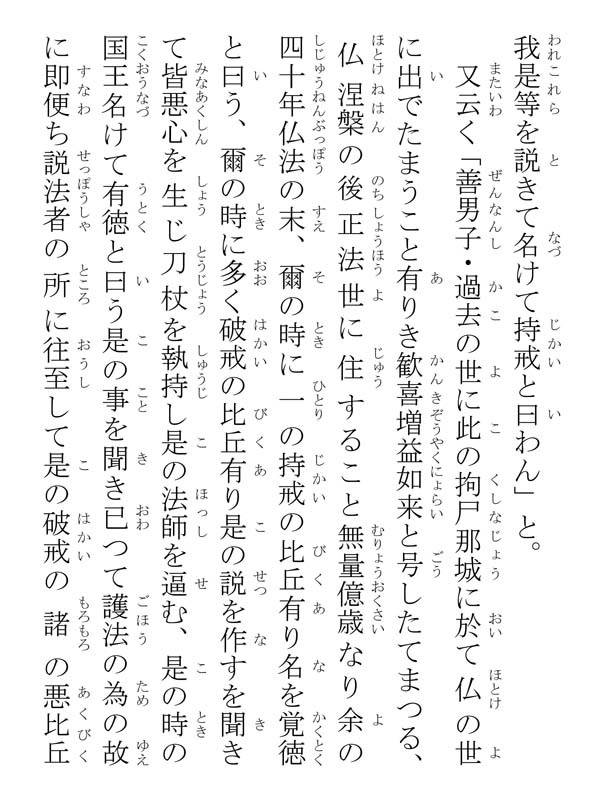 我是等を説きて名けて持戒と曰わん」と。
又云く「善男子・過去の世に此の拘尸那城に於て仏の世
に出でたまうこと有りき歓喜増益如来と号したてまつる、
仏涅槃の後正法世に住すること無量億歳なり余の
四十年仏法の末、爾の時に一の持戒の比丘有り名を覚徳
と曰う、爾の時に多く破戒の比丘有り是の説を作すを聞き
て皆悪心を生じ刀杖を執持し是の法師を逼む、是の時の
国王名けて有徳と曰う是の事を聞き已つて護法の為の故
に即便ち説法者の所に往至して是の破戒の諸の悪比丘